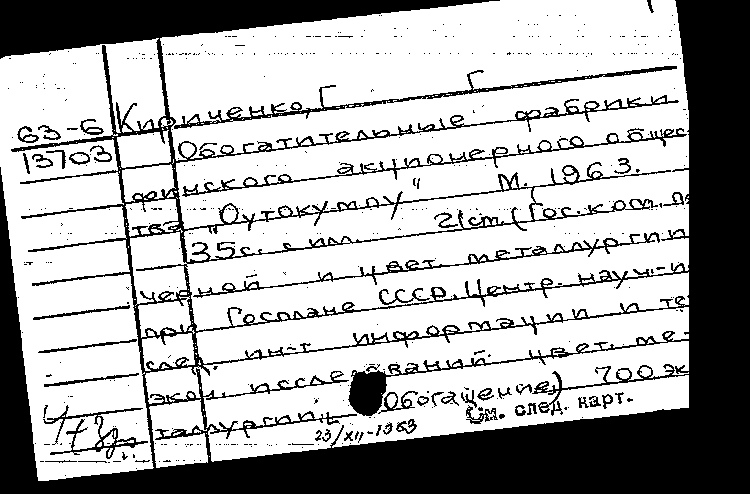 63-6 Кириченко, Г Г
13703 Обогатительные фабрики
финского акционерного общес-
тва „Оутокумпу“ М., 1963.
35с. с илл. 21см (Гос. ком. по
черной и цвет. металлургии
при Госплане СССР. Центр. науч.-и
след. ин-т информации и тех
экон. исследований цвет. ме-
таллургии. Обогащение) 700 эк
23/XII-1963 См. след. карт.